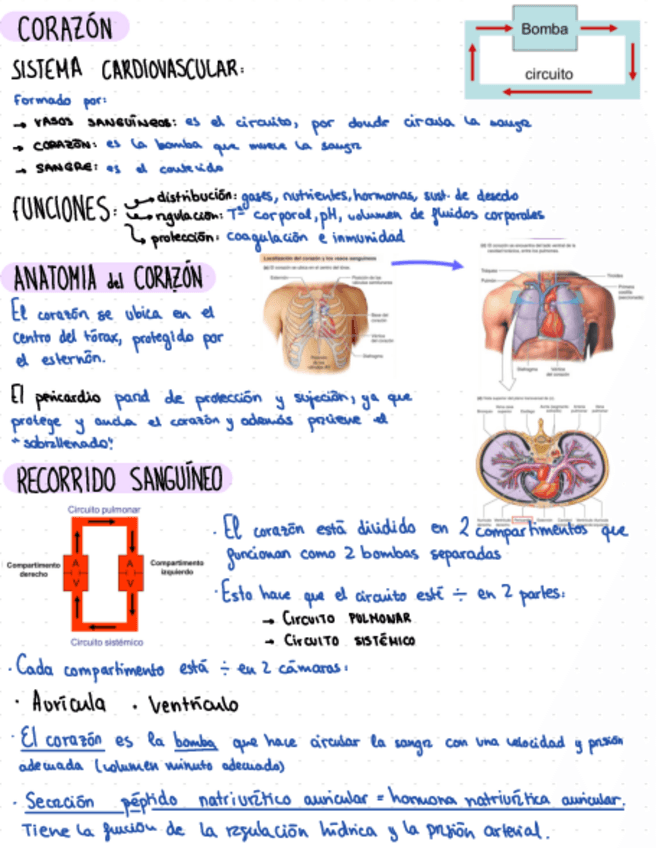 CORAZÓN
Bomba
circuito
SISTEMA CARDIOVASCULAR:
Formado por:
→ VASOS SANGUÍNEOS: es el circuito, por donde circula la sangre
→ CORAZÓN: es la bomba que mueve la sangre
→ SANGRE: es el contenido
FUNCIONES:
→ distribución: gases, nutrientes, hormonas, sust. de desecho
→ regulación: Tª corporal, pH, volumen de fluidos corporales
→ protección: coagulación e inmunidad
ANATOMIA del CORAZÓN
Localización del corazón y los vasos sanguíneos
El corazón se ubica en el
centro del tórax, protegido por
el esternón.
Diafragma
El pericardio pared de protección y sujeción, ya que
protege y ancla el corazón y además previene el
"sobrellenado"
RECORRIDO SANGUÍNEO
Circuito pulmonar
Compartimento derecho
A
V
A
V
Compartimento izquierdo
Circuito sistémico
· El corazón está dividido en 2 compartimentos que
funcionan como 2 bombas separadas
· Esto hace que el circuito esté ÷ en 2 partes:
→ CIRCUITO PULMONAR
→ CIRCUITO SISTÉMICO
· Cada compartimento está ÷ en 2 cámaras:
· Aurícula · Ventrículo
· El corazón es la bomba que hace circular la sangre con una velocidad y presión
adecuada (volumen minuto adecuado)
· Secreción péptido natriurético auricular = hormona natriurética auricular.
Tiene la función de la regulación hídrica y la presión arterial.